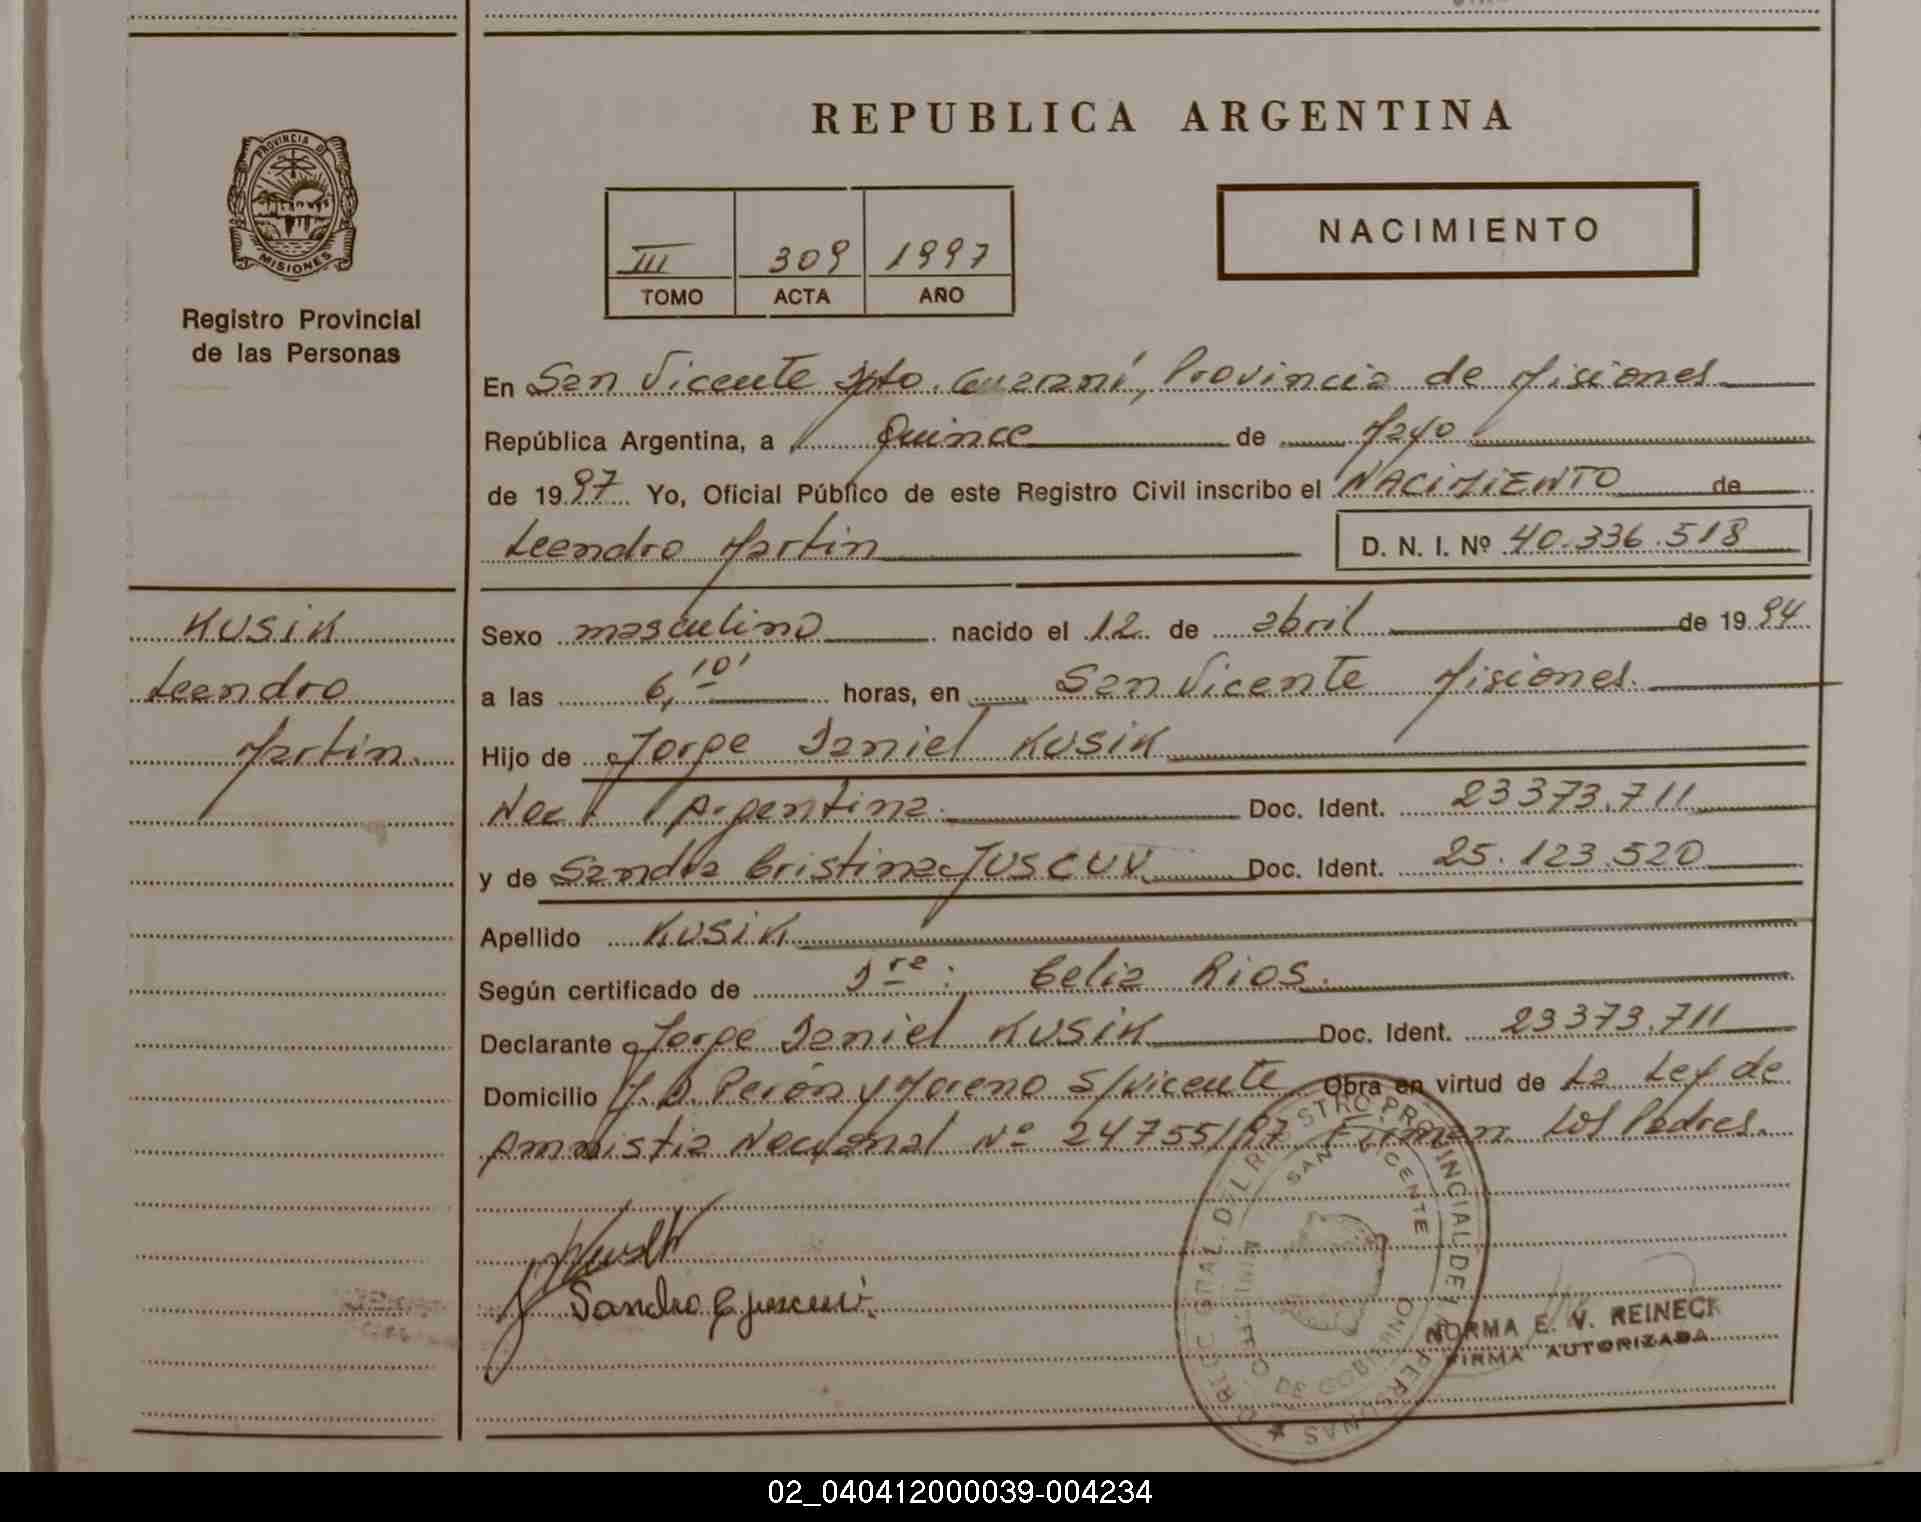 REPUBLICA ARGENTINA
PROVINCIA DE
MISIONES
Registro Provincial
de las Personas
III 309 1997
TOMO ACTA AÑO
NACIMIENTO
En San Vicente Dpto. Guaraní, Provincia de Misiones
República Argentina, a Quince de Mayo
de 1997 Yo, Oficial Público de este Registro Civil inscribo el NACIMIENTO de
Leandro Martin D. N. I. Nº 40.336.518
KUSIK
Leandro
Martin.
Sexo masculino nacido el 12 de abril de 1994
a las 6,10' horas, en San Vicente Misiones.
Hijo de Jorge Daniel KUSIK
Nac. Argentina. Doc. Ident. 23373.711
y de Sandra Cristina JUSCUV Doc. Ident. 25.123.520
Apellido KUSIK
Según certificado de Dra: Celia Rios.
Declarante Jorge Daniel KUSIK Doc. Ident. 23373.711
Domicilio J.D. Perón y Moreno S/Vicente Obra en virtud de La Ley de
Amnistia Nacional Nº 24755/97 Firman Los Padres.
DIREC. GRAL. DEL REGISTRO PROVINCIAL DE LAS PERSONAS
SAN VICENTE
DE GOBIERNO
NORMA E. V. REINECK
FIRMA AUTORIZADA
02_040412000039-004234